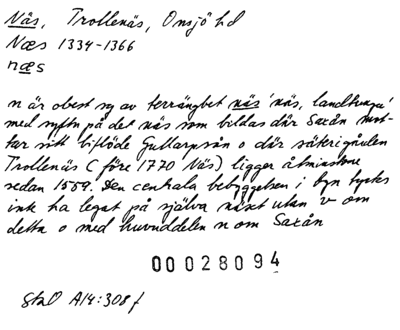 Näs, Trollenäs, Onsjö hd
Næs 1334-1366
næs
n är obest sg av terrängbet näs 'näs, landtunga'
med syftn på det näs som bildas där Saxån mot-
tar sitt biflöde Gullarpsån o där säterigården
Trollenäs (före 1770 Näs) ligger åtminstone
sedan 1559. Den centrala bebyggelsen i byn tycks
inte ha legat på själva näset utan v om
detta o med huvuddelen n om Saxån
00028094
SkO A14:308 f